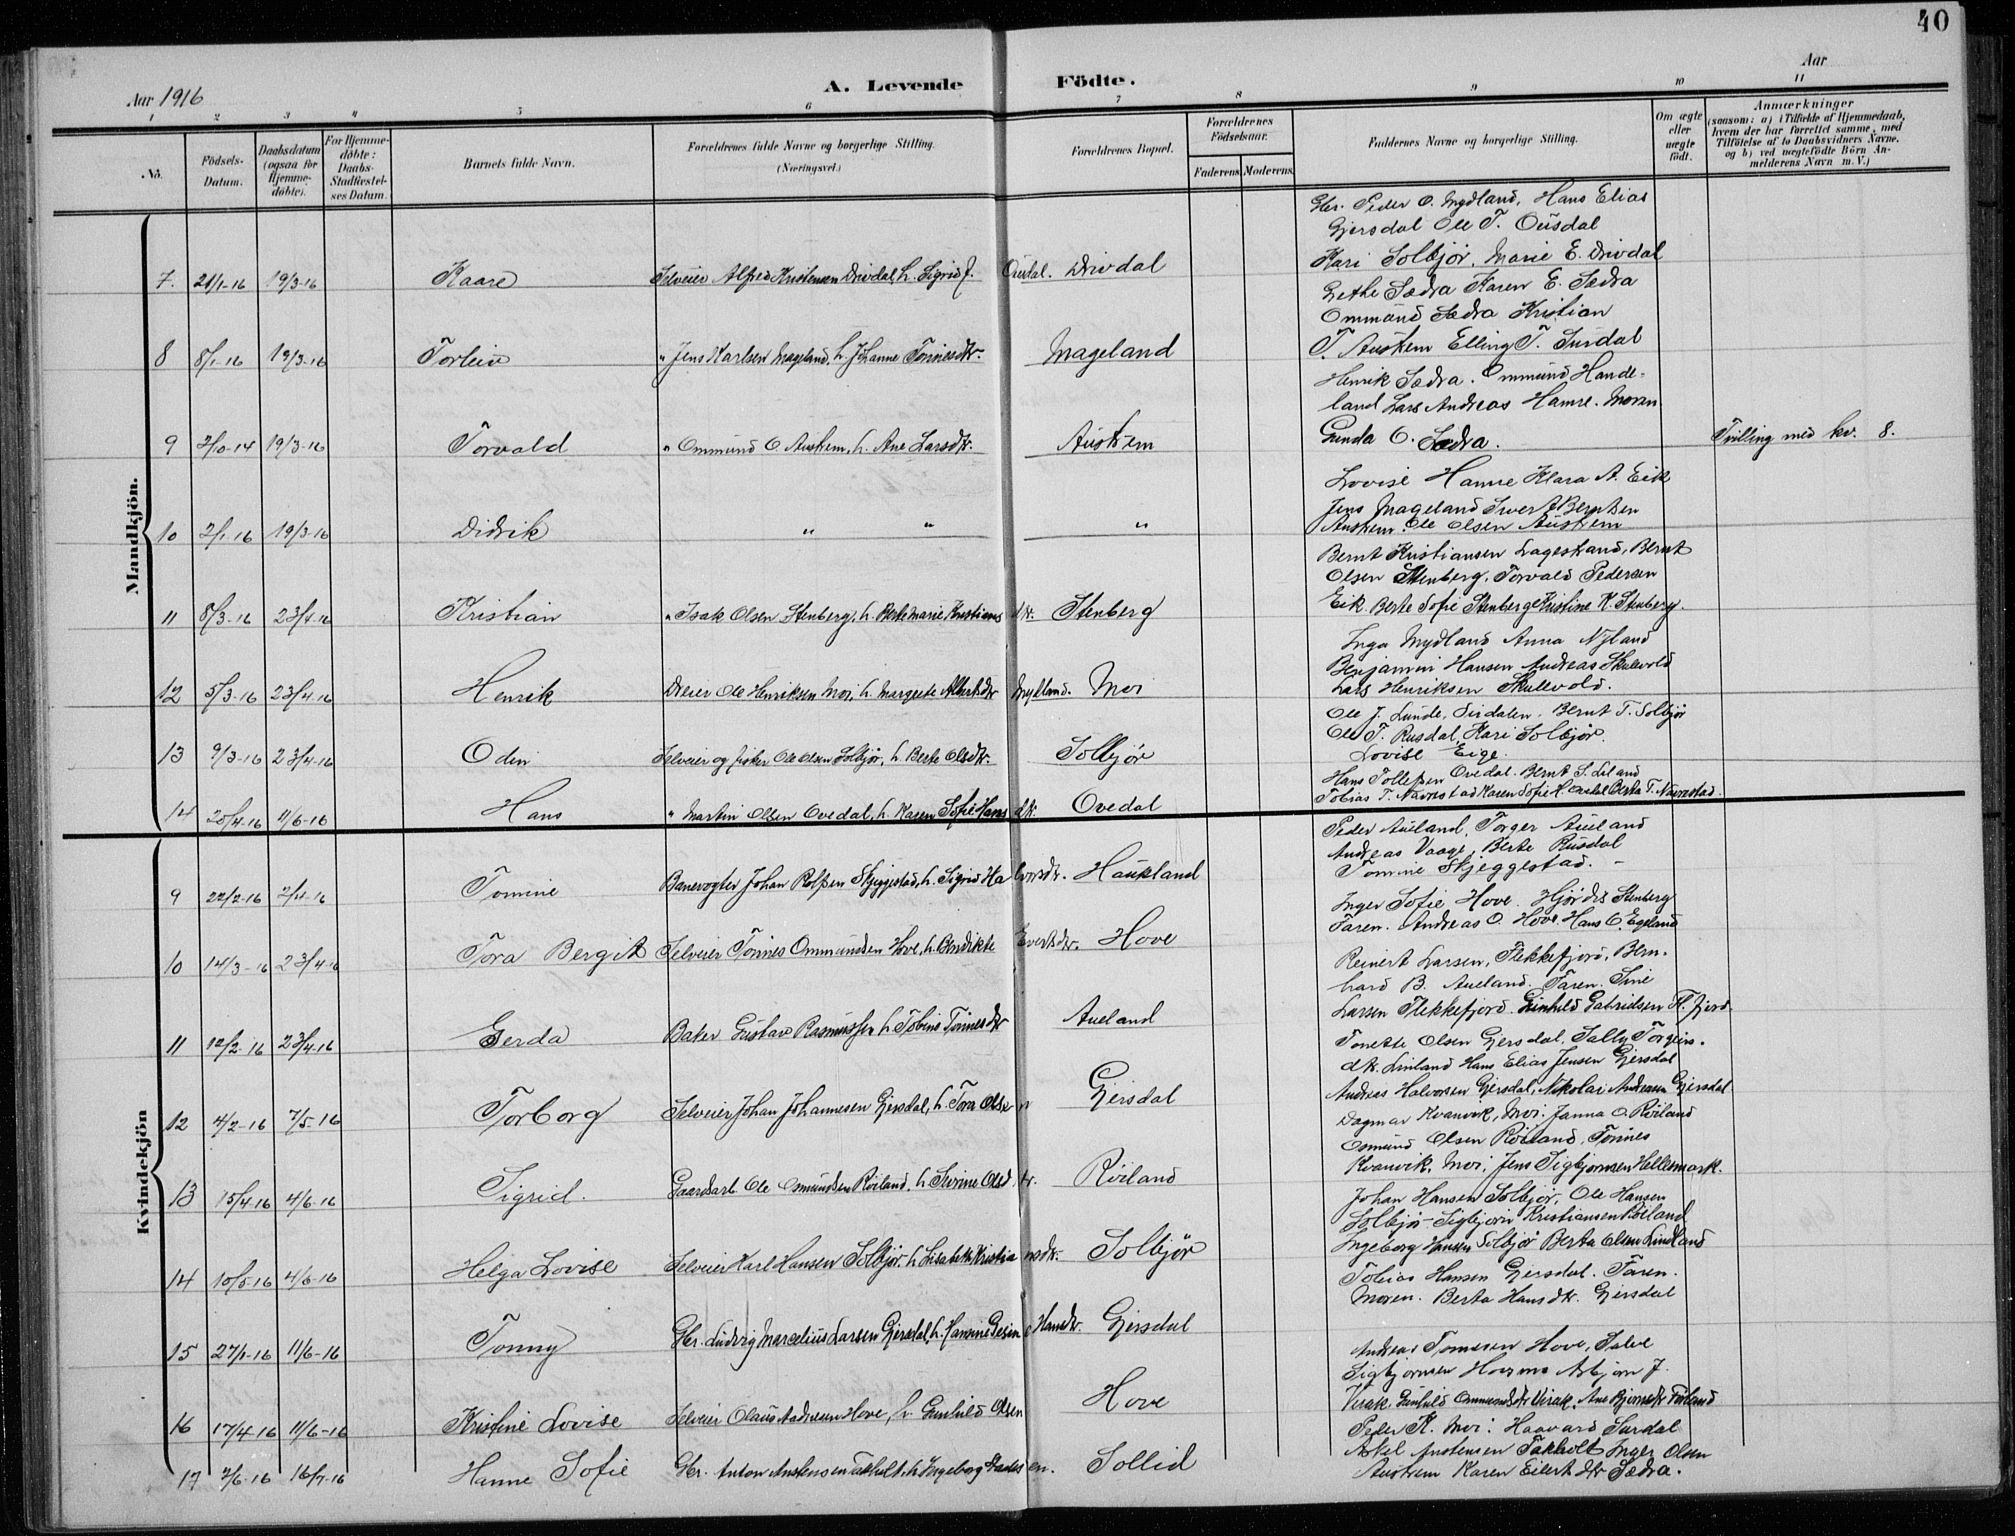 40
Aar 1916
A. Levende Födte.
Aar
1 2 3 4 5 6 7 8 9 10 11
No.
Födsels-Datum.
Daabsdatum (ogsaa for Hjemme-döbte).
For Hjemme-döbte: Daabs-Stadfæstel-ses Datum.
Barnets fulde Navn.
Forældrenes fulde Navne og borgerlige Stilling. (Næringsvei.)
Forældrenes Bopæl.
Forældrenes Födselsaar.
Faderens Moderens
Faddernes Navne og borgerlige Stilling.
Om ægte eller uægte födt.
Anmærkninger (saasom: a) i Tilfælde af Hjemmedaab, hvem der har forrettet samme, med Tilföielse af to Daabsvidners Navne. og b) ved uægtefödte Börn An-melderens Navn m. V.)
Mandkjön.
Gbr. Peder O. Mydland, Hans Elias
Gjersdal Ole T. Ousdal
7. 21/1-16 19/3-16 Kaare Selveier Alfred Kristensen Drivdal, h. Sigrid J. Ousdal. Drivdal Kari Solbjör, Marie E. Drivdal
Grethe Sædra Karen E. Sædra
Ommund Sædra Kristian
8 8/1-16 19/3-16 Torleiv " Jens Karlsen Mageland, h. Johanne Tönnesdtr. Mageland T. Austrem Elling T. Surdal
Henrik Sædra. Ommund Hande-
land Lars Andreas Hamre. Moren
9 2/10-14 19/3-16 Torvald " Ommund O. Austrem, h. Ane Larsdtr. Austrem Gunda O. Sædra. Tvilling med kv. 8.
Lovise Hamre Klara A. Eik
Jens Mageland Sivert Berntsen
10 2/1-16 19/3-16 Didrik " " " Austrem. Ole Olsen Austrem
Bernt Kristiansen Lagestrand, Bernt
Olsen Stenberg, Torvald Pedersen
11 8/3-16 23/4-16 Kristian " Isak Olsen Stenberg, h. Berte Marie Kristians dtr. Stenberg Eik. Berte Sofie Stenberg Kristine K. Stenberg.
Inga Mydland Anna Nyland
Benjamin Hansen Andreas Skulevold
12 5/3-16 23/4-16 Henrik Dreier Ole Henriksen Moi, h. Margrete Albertsdtr Mydland. Moi Lars Henriksen Skulevold.
Ole J. Lunde, Sirdalen. Bernt T. Solbjör
13 9/3-16 23/4-16 Odin Selveier og fisker Ole Olsen Solbjör, h. Berte Olsdtr. Solbjör Ole T. Rusdal, Kari Solbjör.
Lovise Eige.
Hans Tollefsen Ovedal. Bernt S. Liland
14 25/4-16 11/6-16 Hans " Martin Olsen Ovedal, h. Karen Sofie Hans dtr. Ovedal Tobias T. Navrestad Karen Sofie H. Ovedal Berta T. Navrestad.
Kvindekjön
Peder Aueland, Torger Aueland
Andreas Vaage, Berte Rusdal
9 22/2-16 2/4-16 Tomine Banevogter Johan Rolfsen Skjeggestad, h. Sigrid Halvorsdtr. Haukland Tomine Skjeggestad.
Inger Sofie Hove. Hjördis Stenberg
10 14/3-16 23/4-16 Tora Bergit Selveier Tönnes Ommundsen Hove, h. Bendikte Evertsdtr. Hove Faren. Andreas O. Hove. Hans O. Egeland
Reinert Larsen, Flekkefjord, Bern-
hard B. Aueland. Faren. Sine
11 12/2-16 23/4-16 Gerda Baker Gustav Rasmussen h. Tobine Tönnesdtr Aueland Larsen Flekkefjord Gunhild Gabrielsen Fl. fjord.
Tonette Olsen Gjersdal, Sally Torgeirs.
dtr. Linland Hans Elias Jensen Gjersdal
12 4/2-16 7/5-16 Torborg Selveier Johan Johannesen Gjersdal, h. Tora Olsen Gjersdal Andreas Halvorsen Gjersdal, Nikolai Andersen Gjersdal
Dagmar Kvanvik, Moi. Janna O. Röiland
Osmund Olsen Röiland, Tönnes
13 15/4-16 4/6-16 Sigrid. Gaardarb. Ole Osmundsen Röiland, h. Sivrine Olsd.tr. Röiland Kvanvik, Moi, Jens Sigbjørnsen Hellesmark.
Johan Hansen Solbjör, Ole Hansen
Solbjör Sigbjörn Kristiansen Röiland
14 10/5-16 4/6-16 Helga Lovise Selveier Karl Hansen Solbjör, h. Lisabeth Kristiansdtr. Solbjör Ingeborg Hansen Solbjör Berta Olsen Lindland
Tobias Hansen Gjersdal. Faren.
Moren. Berta Hansdtr. Gjersdal
15 27/1-16 11/6-16 Tonny Gbr. Ludvig Marcelius Larsen Gjersdal, h. Hansine Gesine Hansdtr. Gjersdal
Andreas Tønnesen Hove, Salve
Sigbjörnsen Asbjørn J.
16 17/4-16 11/6-16 Kristine Lovise Selveier Olaus Andresen Hove, h. Gunhild Olsen Hove Virak. Gunhild Ommundsdtr Virak, Ane Bjørnsdtr Förland
Peder K. Moi. Haavard Surdal
Aksel Anstensen Takholt Inger Olsen
17 2/6-16 16/7-16 Hanne Sofie Gbr. Anton Anstensen Takholt, h. Ingeborg Sollid Austrem Karen Eilertsdtr Sædra.